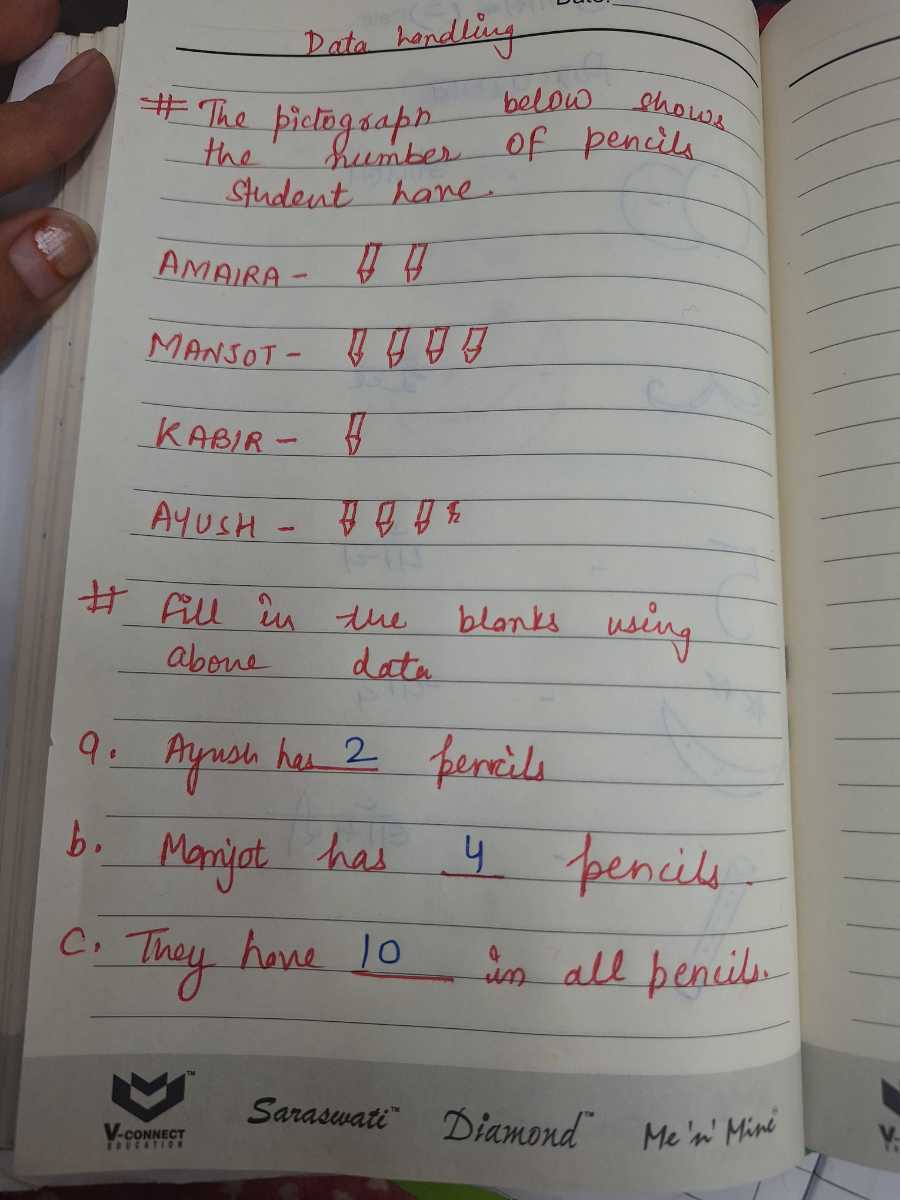 Date:
Data handling
# The pictograph below shows
the number of pencils
student have.
AMAIRA -
MANJOT -
KABIR -
AYUSH -
# Fill in the blanks using
above data
a. Ayush has 2 pencils
b. Manjot has 4 pencils.
c. They have 10 in all pencils.
V-CONNECT
EDUCATION
Saraswati™ Diamond™ Me 'n' Mine